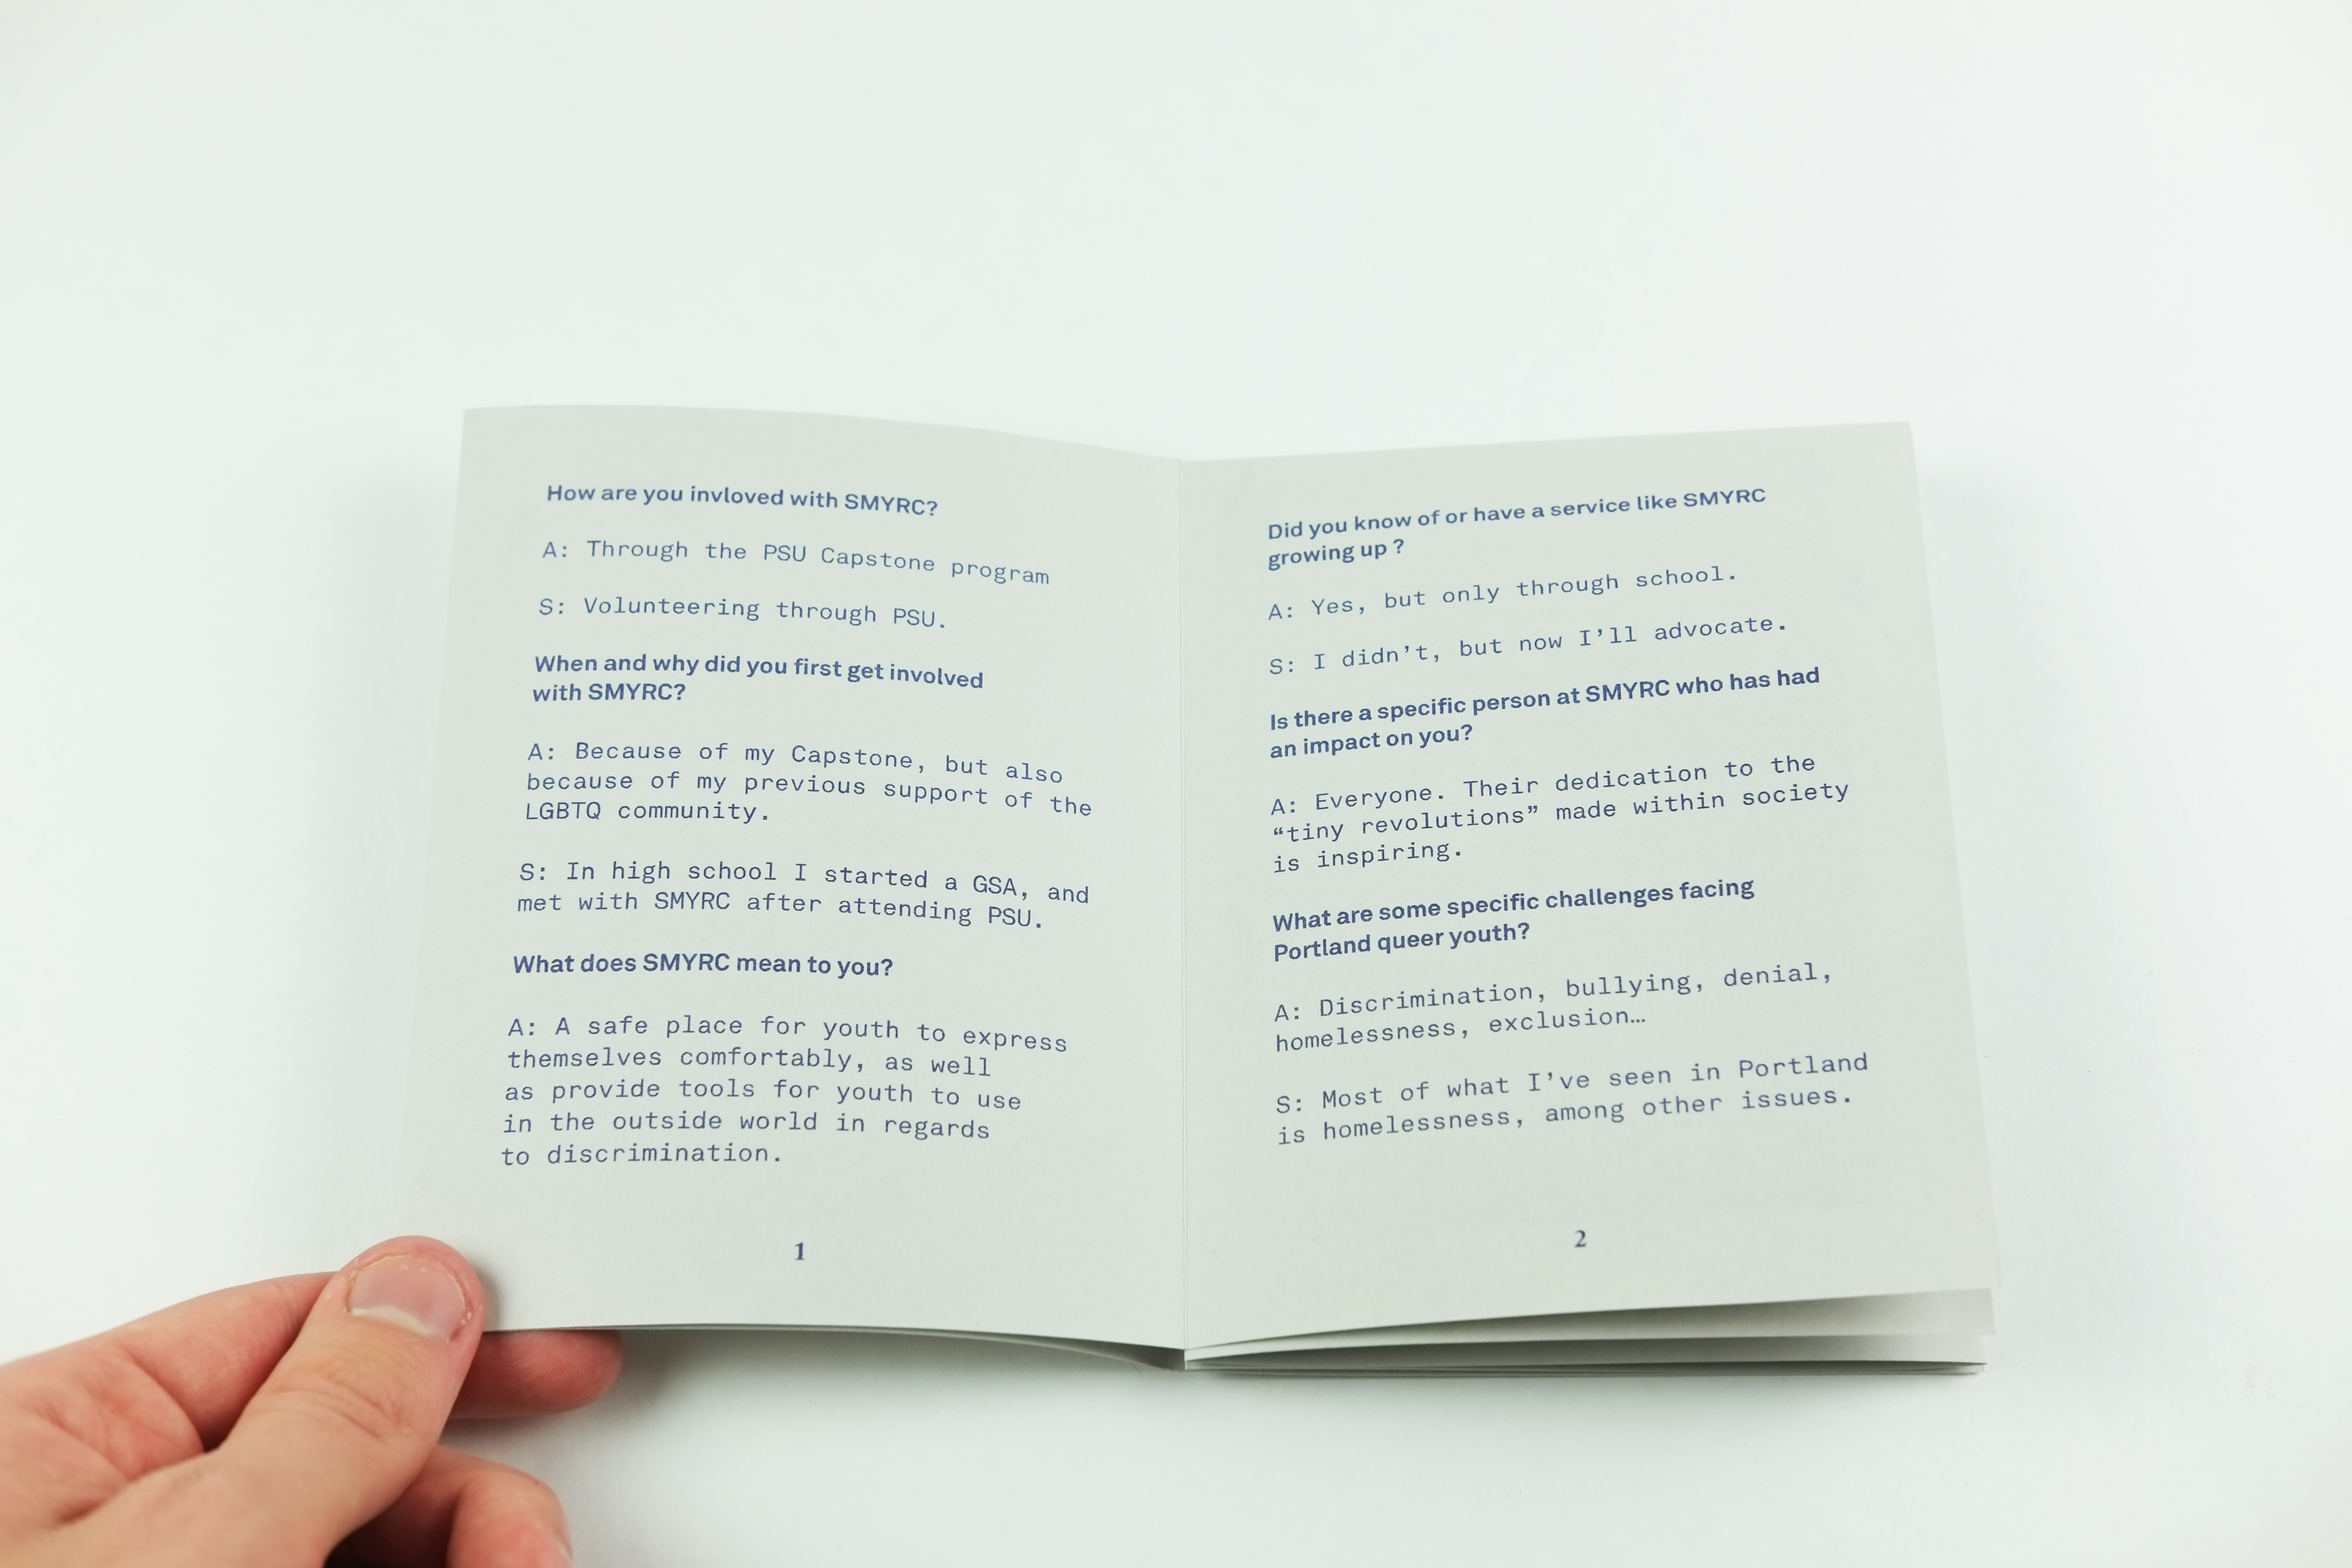 How are you invloved with SMYRC?
A: Through the PSU Capstone program
S: Volunteering through PSU.
When and why did you first get involved
with SMYRC?
A: Because of my Capstone, but also
because of my previous support of the
LGBTQ community.
S: In high school I started a GSA, and
met with SMYRC after attending PSU.
What does SMYRC mean to you?
A: A safe place for youth to express
themselves comfortably, as well
as provide tools for youth to use
in the outside world in regards
to discrimination.
1
Did you know of or have a service like SMYRC
growing up ?
A: Yes, but only through school.
S: I didn’t, but now I’ll advocate.
Is there a specific person at SMYRC who has had
an impact on you?
A: Everyone. Their dedication to the
“tiny revolutions” made within society
is inspiring.
What are some specific challenges facing
Portland queer youth?
A: Discrimination, bullying, denial,
homelessness, exclusion…
S: Most of what I’ve seen in Portland
is homelessness, among other issues.
2